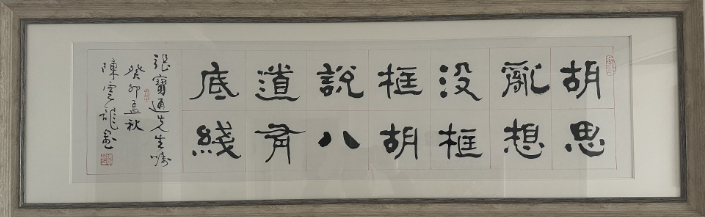 胡思
亂想
没框
框胡
說八
道有
底綫
張寶通先生嘱
癸卯孟秋
陳雲龍書